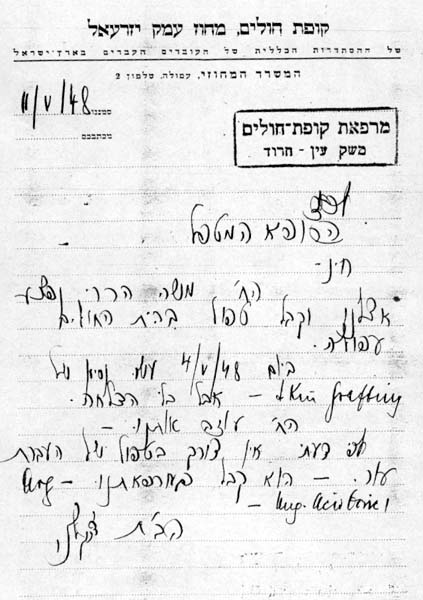 קופת חולים, מחוז עמק יזרעאל
של ההסתדרות הכללית של העובדים העברים בארץ־ישראל
המשרד המחוזי, עפולה, טלפון 2
11/V/48
סמננו
מכתבכם
מרפאת קופת־חולים
משק עין - חרוד
הרופא המטפל
ח.נ.
הח' מנשה הררי נפצע
אצלנו וקבל טפול בבית החולים
עפולה.
ביום 4/V/48 עשו נסיון של
grafting - אבל בלי הצלחה.
הח' עוזב אותנו -
לפי דעתי אין צורך בטפול של העברת
עור. - הוא קבל במרפאתנו - Ung.
Ung.
הב'ח